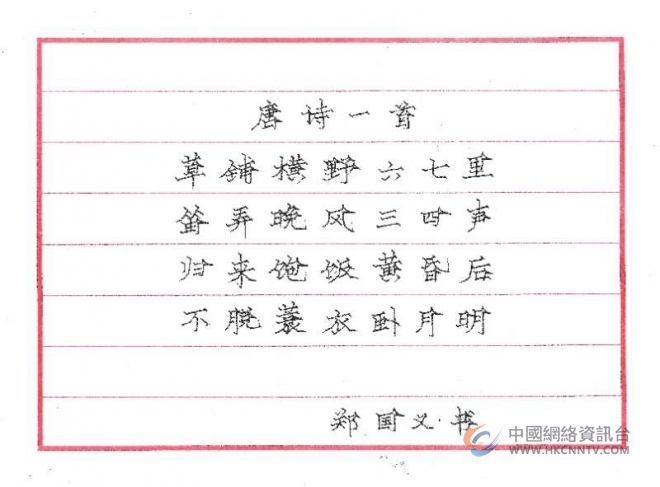 唐诗一首
草铺横野六七里
笛弄晚风三四声
归来饱饭黄昏后
不脱蓑衣卧月明
郑国义·书
中國網絡資訊台
WWW.HKCNNTV.COM